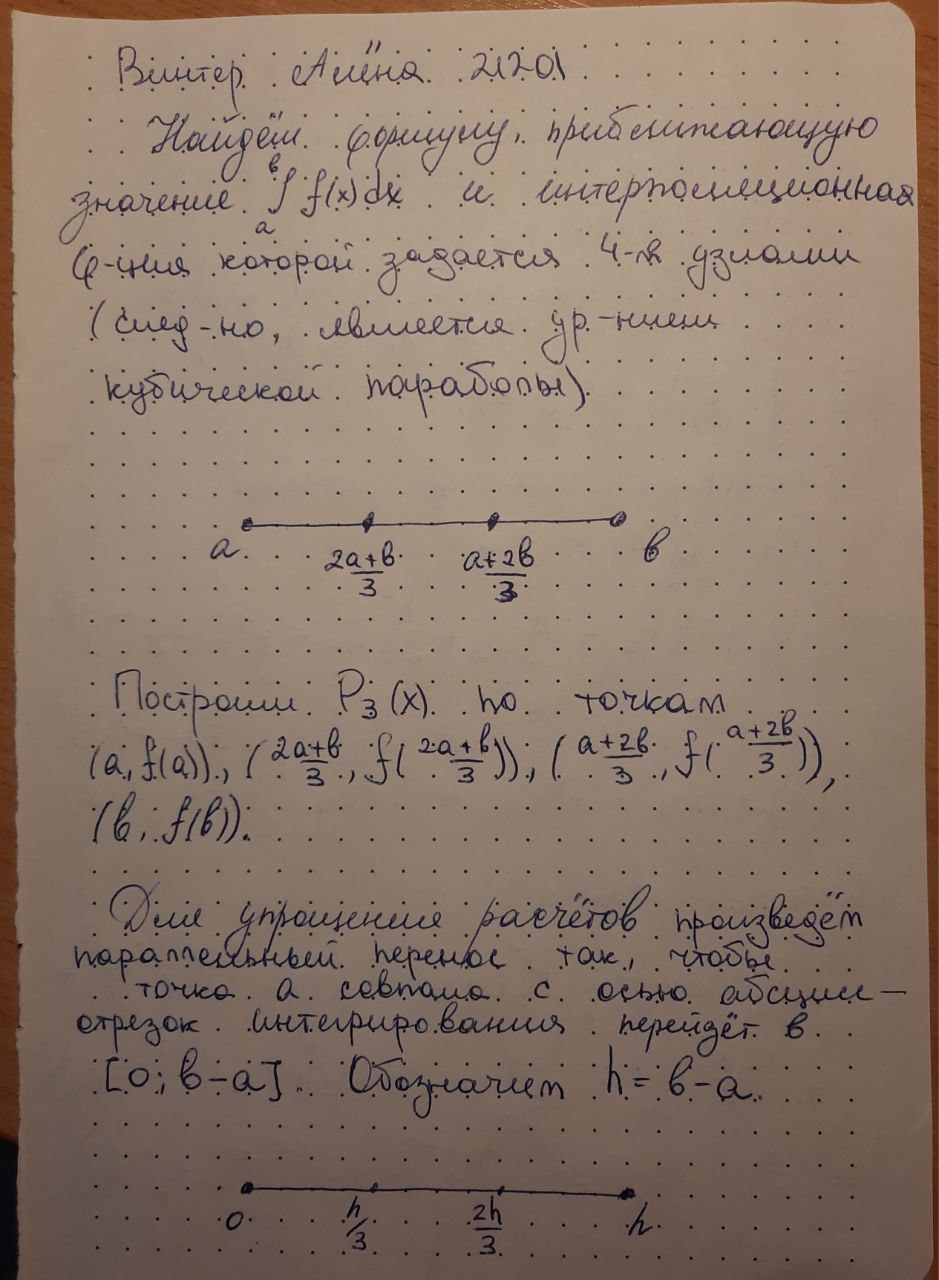 Винтер Алёна 21201
Найдём формулу, приближающую
значение ∫ₐᵇ f(x)dx и интерполяционная
ф-ция которой задается 4-мя узлами
(след-но, является ур-нием
кубической параболы).
a 2a+b/3 a+2b/3 b
Построим P₃(x) по точкам
(a, f(a)), (2a+b/3, f(2a+b/3)), (a+2b/3, f(a+2b/3)),
(b, f(b)).
Для упрощения расчётов произведём
параллельный перенос так, чтобы
точка a совпала с осью абсцисс –
отрезок интегрирования перейдёт в
[0; b-a]. Обозначим h = b-a.
0 h/3 2h/3 h